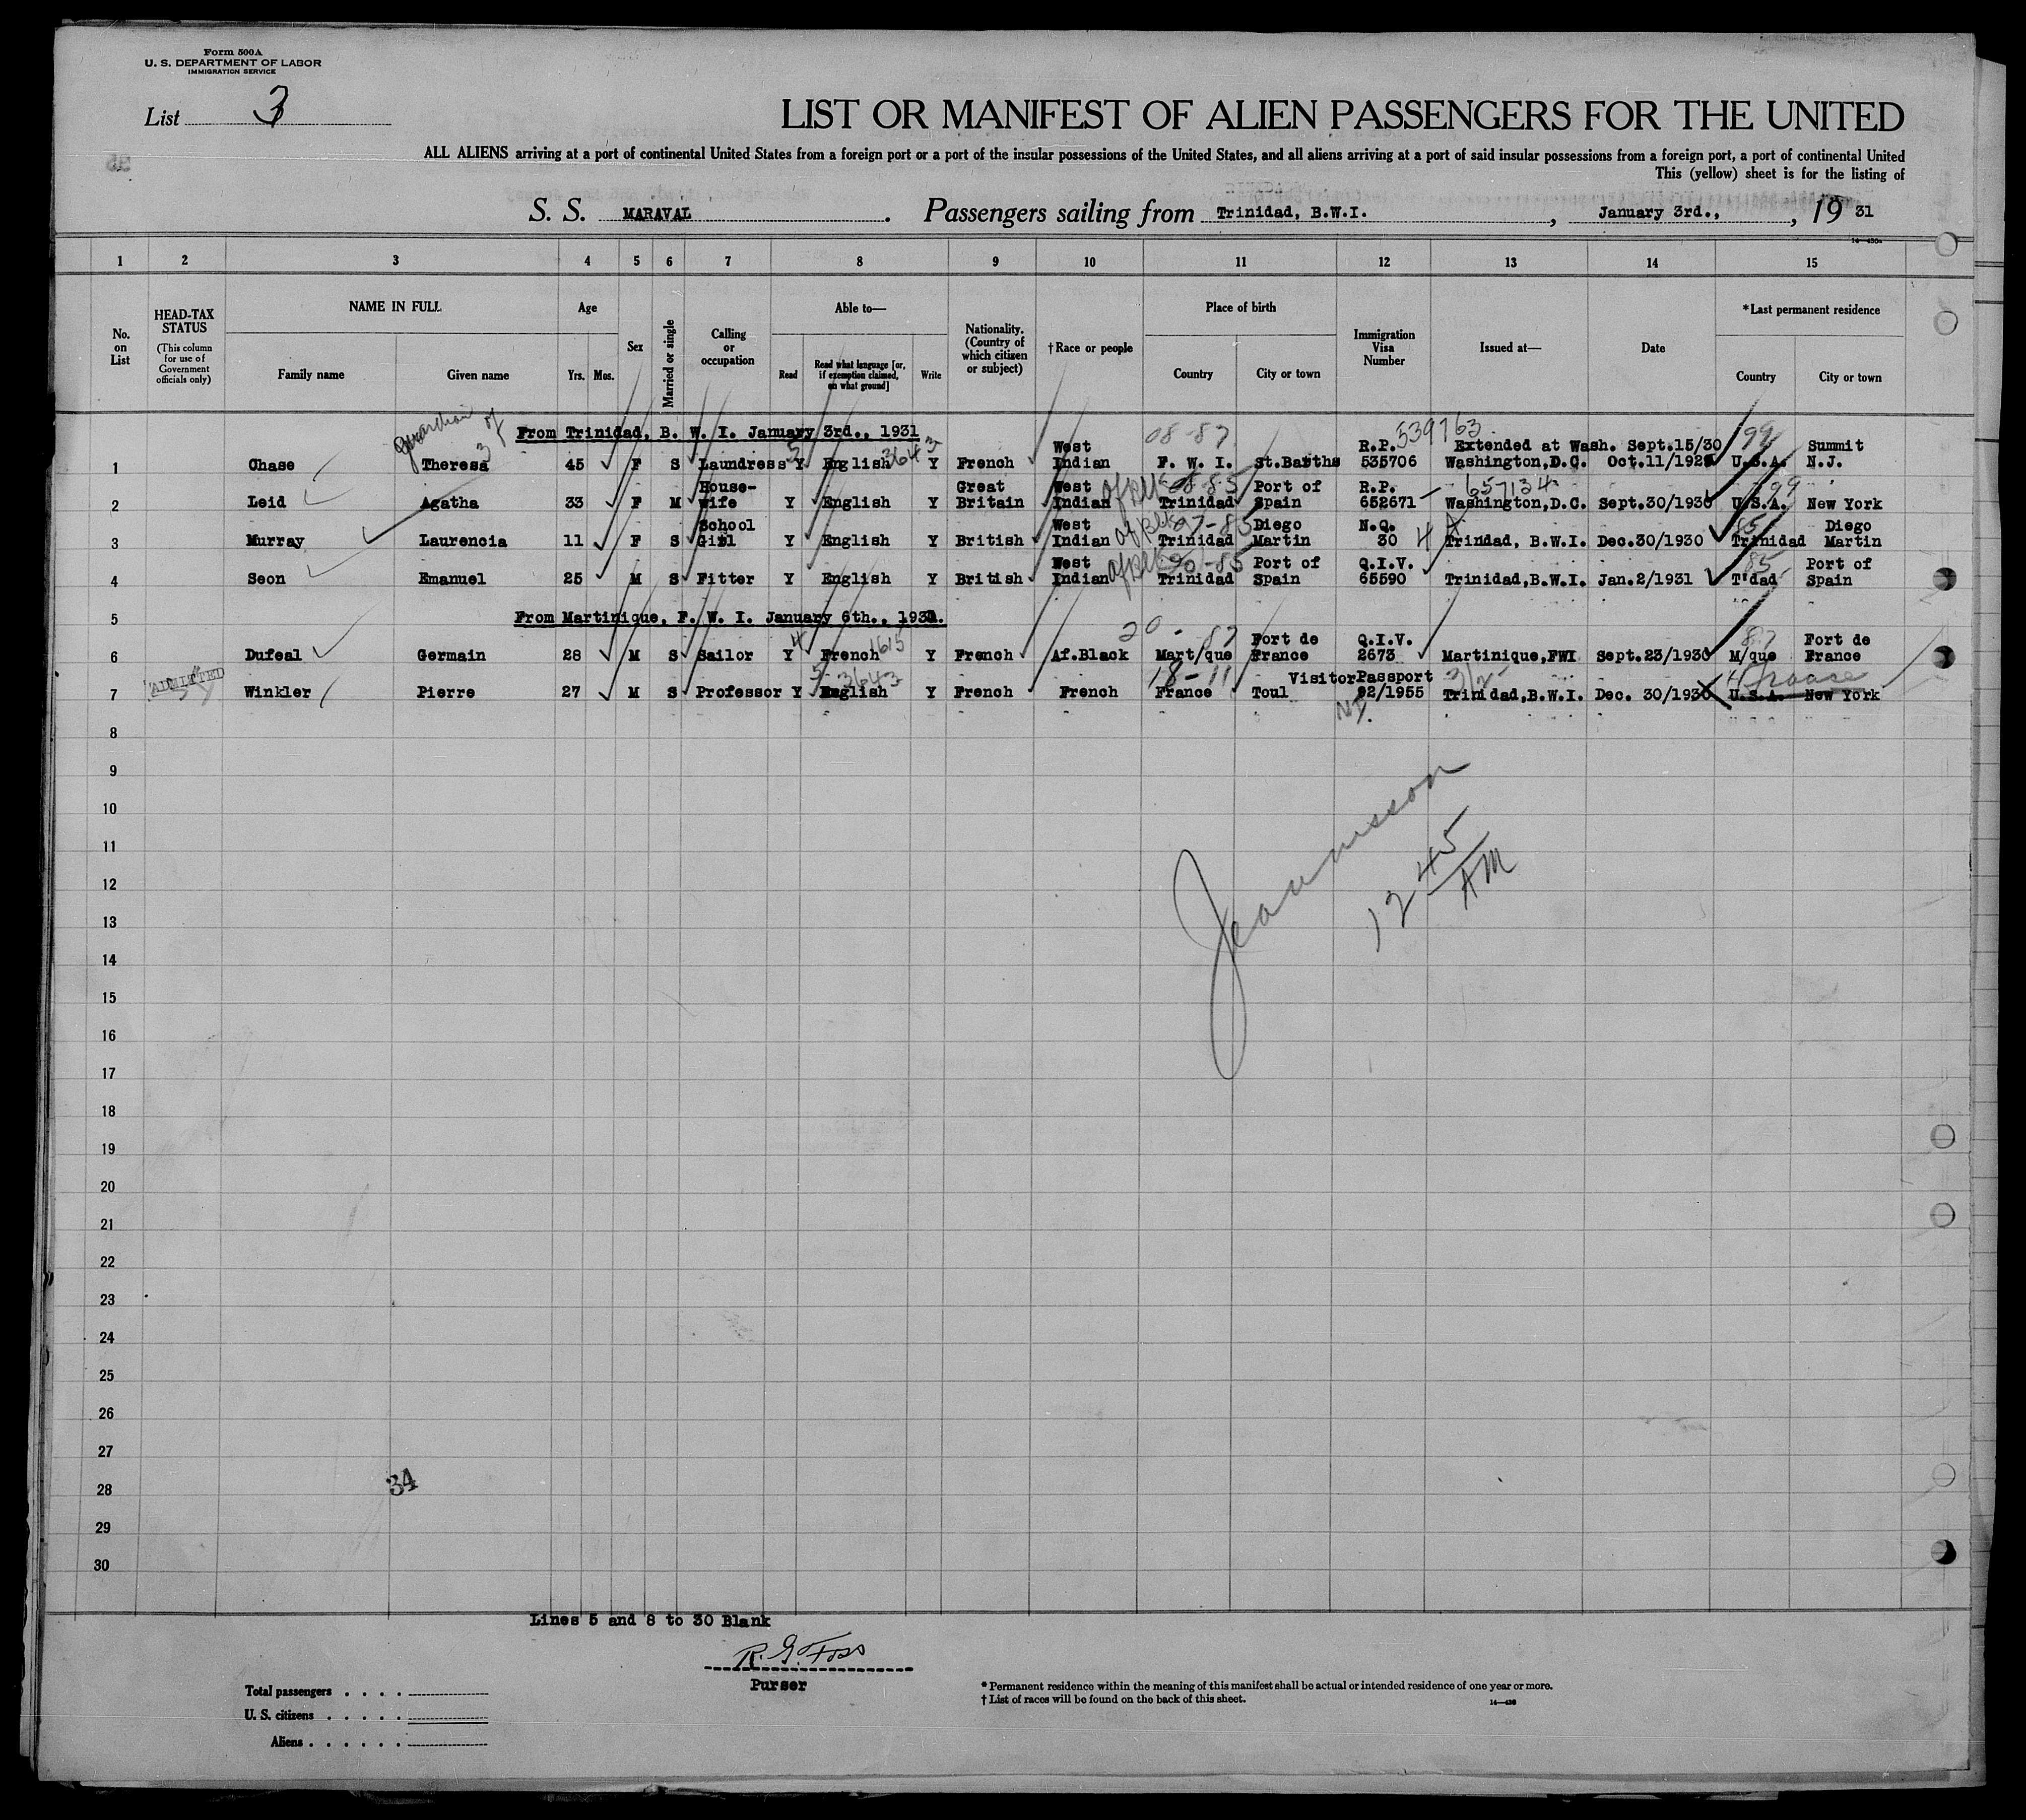 Form 500A
U. S. DEPARTMENT OF LABOR
IMMIGRATION SERVICE
List 3
LIST OR MANIFEST OF ALIEN PASSENGERS FOR THE UNITED
ALL ALIENS arriving at a port of continental United States from a foreign port or a port of the insular possessions of the United States, and all aliens arriving at a port of said insular possessions from a foreign port, a port of continental United
This (yellow) sheet is for the listing of
S. S. MARAVAL. Passengers sailing from Trinidad, B.W.I., January 3rd., , 19 31
1 2 3 4 5 6 7 8 9 10 11 12 13 14 15
No. on List
HEAD-TAX STATUS (This column for use of Government officials only)
NAME IN FULL
Family name Given name
Age
Yrs. Mos.
Sex
Married or single
Calling or occupation
Able to—
Read Read what language [or, if exemption claimed, on what ground] Write
Nationality. (Country of which citizen or subject)
† Race or people
Place of birth
Country City or town
Immigration Visa Number
Issued at—
Date
*Last permanent residence
Country City or town
guardian of 3
From Trinidad, B. W. I. January 3rd., 1931
1 Chase Theresa 45 F S Laundress Y English 3643 Y French West Indian 08-87 F. W. I. St.Barths R.P. 535706 539763 Extended at Wash. Sept.15/30 Washington,D.C. Oct.11/1929 99 U.S.A. Summit N.J.
2 Leid Agatha 33 F M House-wife Y English Y Great Britain West Indian Af blk 08-85 Trinidad Port of Spain R.P. 652671 657134 Washington,D.C. Sept.30/1930 99 U.S.A. New York
3 Murray Laurencia 11 F S School Girl Y English Y British West Indian Af blk 07-85 Trinidad Diego Martin N.Q. 30 4 Trindad, B.W.I. Dec.30/1930 85 Trinidad Diego Martin
4 Seon Emanuel 25 M S Fitter Y English Y British West Indian Af blk 20-85 Trinidad Port of Spain Q.I.V. 65590 Trinidad,B.W.I. Jan.2/1931 85 T'dad Port of Spain
5 From Martinique, F. W. I. January 6th., 1931.
6 Dufeal Germain 28 M S Sailor Y 4 French 1615 Y French Af.Black 20-87 Mart/que Fort de France Q.I.V. 2673 Martinique,FWI Sept.23/1930 87 M/que Fort de France
ADMITTED
7 Winkler Pierre 27 M S Professor Y 5 English 3643 Y French French 18-11 France Toul Visitor Passport 92/1955 3/2 Trinidad,B.W.I. Dec. 30/1930 France U.S.A. New York
8
9
10
11
12
13
14
15
16
17
18
19
20
21
22
23
24
25
26
27
28
29
30
12 45 AM
34
Lines 5 and 8 to 30 Blank
R. G. Foss
Purser
Total passengers . . . .
U. S. citizens . . . . .
Aliens . . . . . .
* Permanent residence within the meaning of this manifest shall be actual or intended residence of one year or more.
† List of races will be found on the back of this sheet.
14—430